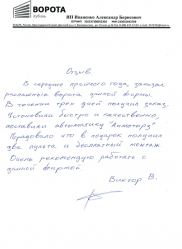 ВОРОТА
Кубань
ИП Иваненко Александр Борисович
Отзыв.
В середине прошлого года, заказал
рольставни ворота данной фирмы.
В течении трех дней получил заказ.
Установили быстро и качественно,
поставили автоматику "Алютех".
Порадовало что в подарок получил
два пульта и бесплатный монтаж.
Очень рекомендую работать с
данной фирмой
Виктор В.